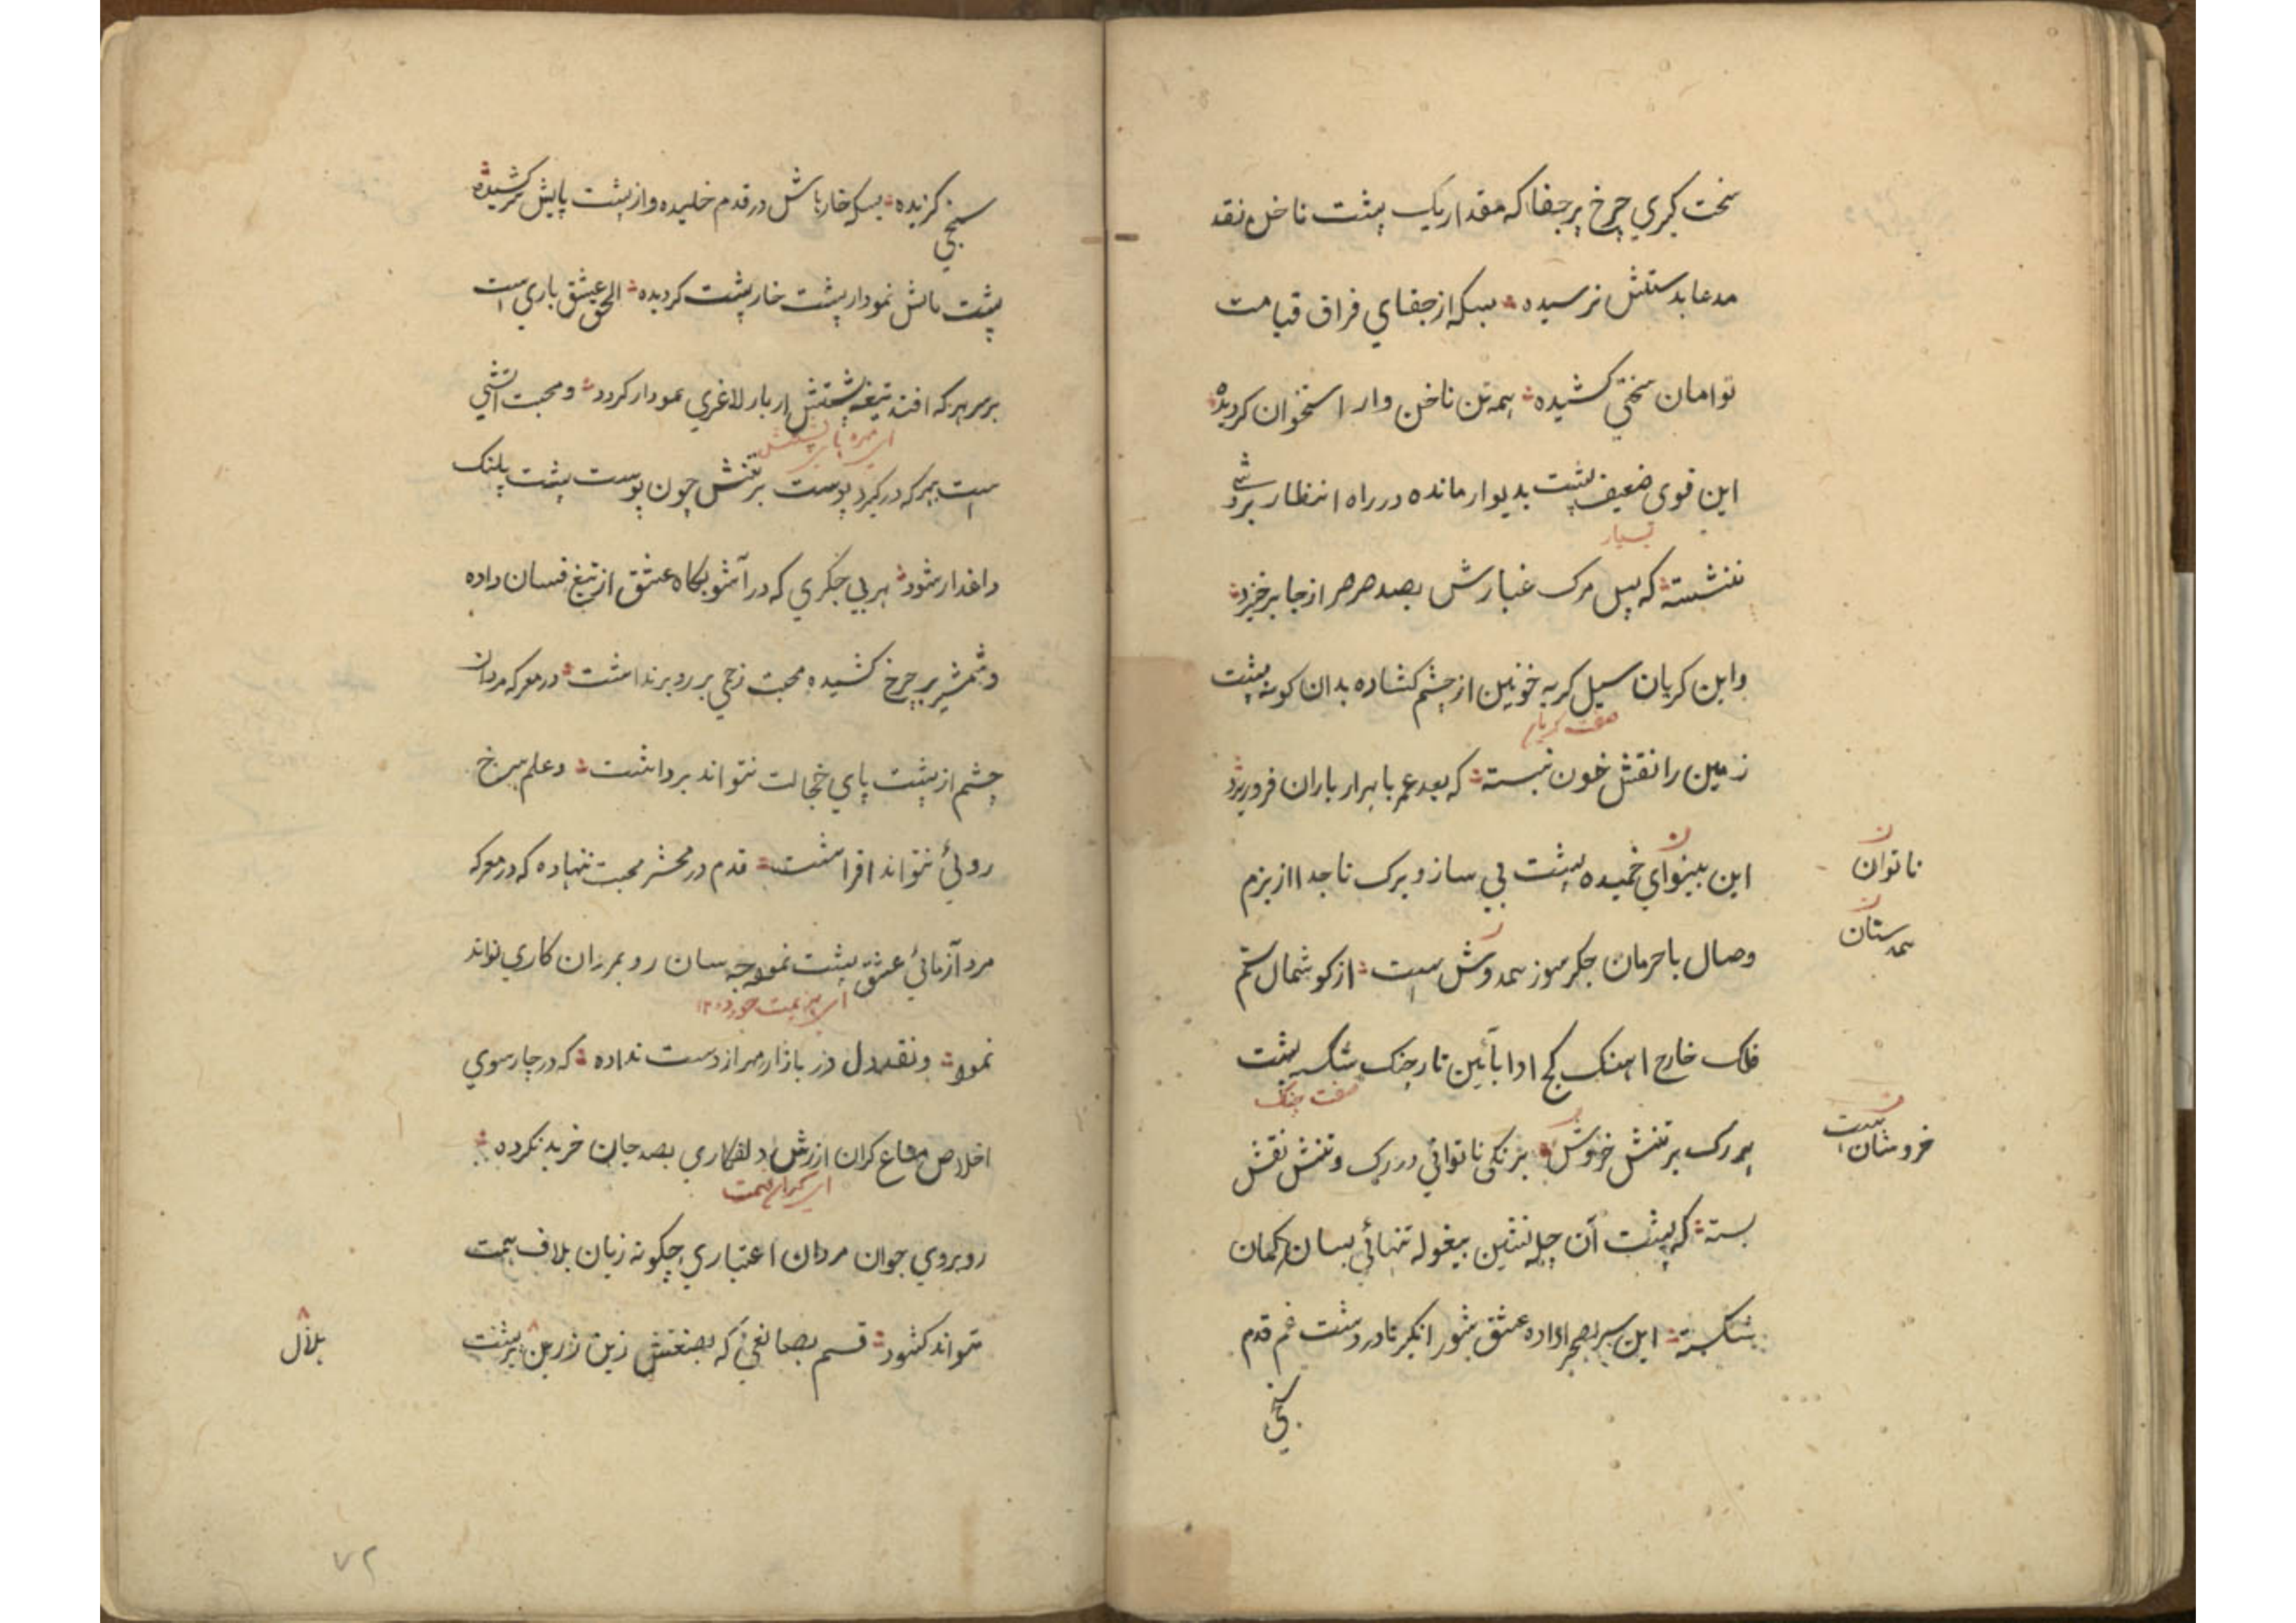 سخت گیري چرخ پر جفا که مقدار یک پشت ناخن نقد
مدعا بدستش نرسیده بسکه از جفاي فراق قیامت
توامان سختي کشیده همه تن ناخن وار استخوان کردیده
این قوی ضعیف پشت بدیوار مانده در راه انتظار
بسیار
ننشسته که سیل مرک غبارش بصد صرصر از جا برخیزد
واین کریان سیل کریه خونین از چشم کشاده بدان کونه پشت
صفت کریان
زمین را نقش خون نبسته که بعد عمر با هزار باران فروریزد
این بینواي خمیده پشت بي ساز و برک تا جدا از بزم
ناتوان
وصال با حرمان جکر سوز همدوش است از کوشمال ستم
همدستان
فلک خارج اهنک کج ادا بآئین تار چنک شکسته پشت
صفت چنک
هر رک بر تنش خروش بزنکی ناتواني در رک و تنش نقش
خروشان است
بسته که پشت آن چله نشین بیغوله تنهائي بسان کمان
بشکسته این سر بصحرا داده عشق شور انکیز تا در دشت غم قدم
سنجي
سنجي کزیده بسکه خارهاش در قدم خلیده و از پشت پایش سر کشیده
پشت پاش نمودار پشت خار پشت کردیده الحق عشق باري است
بر سر هر که افتد تیغه پشتش از بار لاغري نمودار کردد و محبت آتشي
اي مهره هاي پشتش
است بهر که در کیرد پوست بر تنش چون پوست پشت پلنک
داغدار شود هر بي جکري که در آشوبکاه عشق از تیغ فسان داده
و شمشیر بر چرخ کشیده محبت زخمي بر رو برنداشت در معرکه مردان
چشم از پشت پاي خجالت نتواند برداشت و علم سرخ
روئي نتواند افراشت قدم در محشر محبت ننهاده که در معرکه
مرد آزمائي عشق پشت نموده چه سان رو بمردان کاري تواند
اي هزیمت خورده ۱۲
نمود و نقد دل در بازار مهر از دست نداده که در چارسوي
اخلاص متاع کران ارزش دلفکاري بصد جان خرید نکرده
اي کران قیمت
روبروي جوان مردان اعتباري چکونه زبان بلاف همت
تواند کشود قسم بصانعي که بصنعتش زین زرین بر پشت
بلال
۷۲